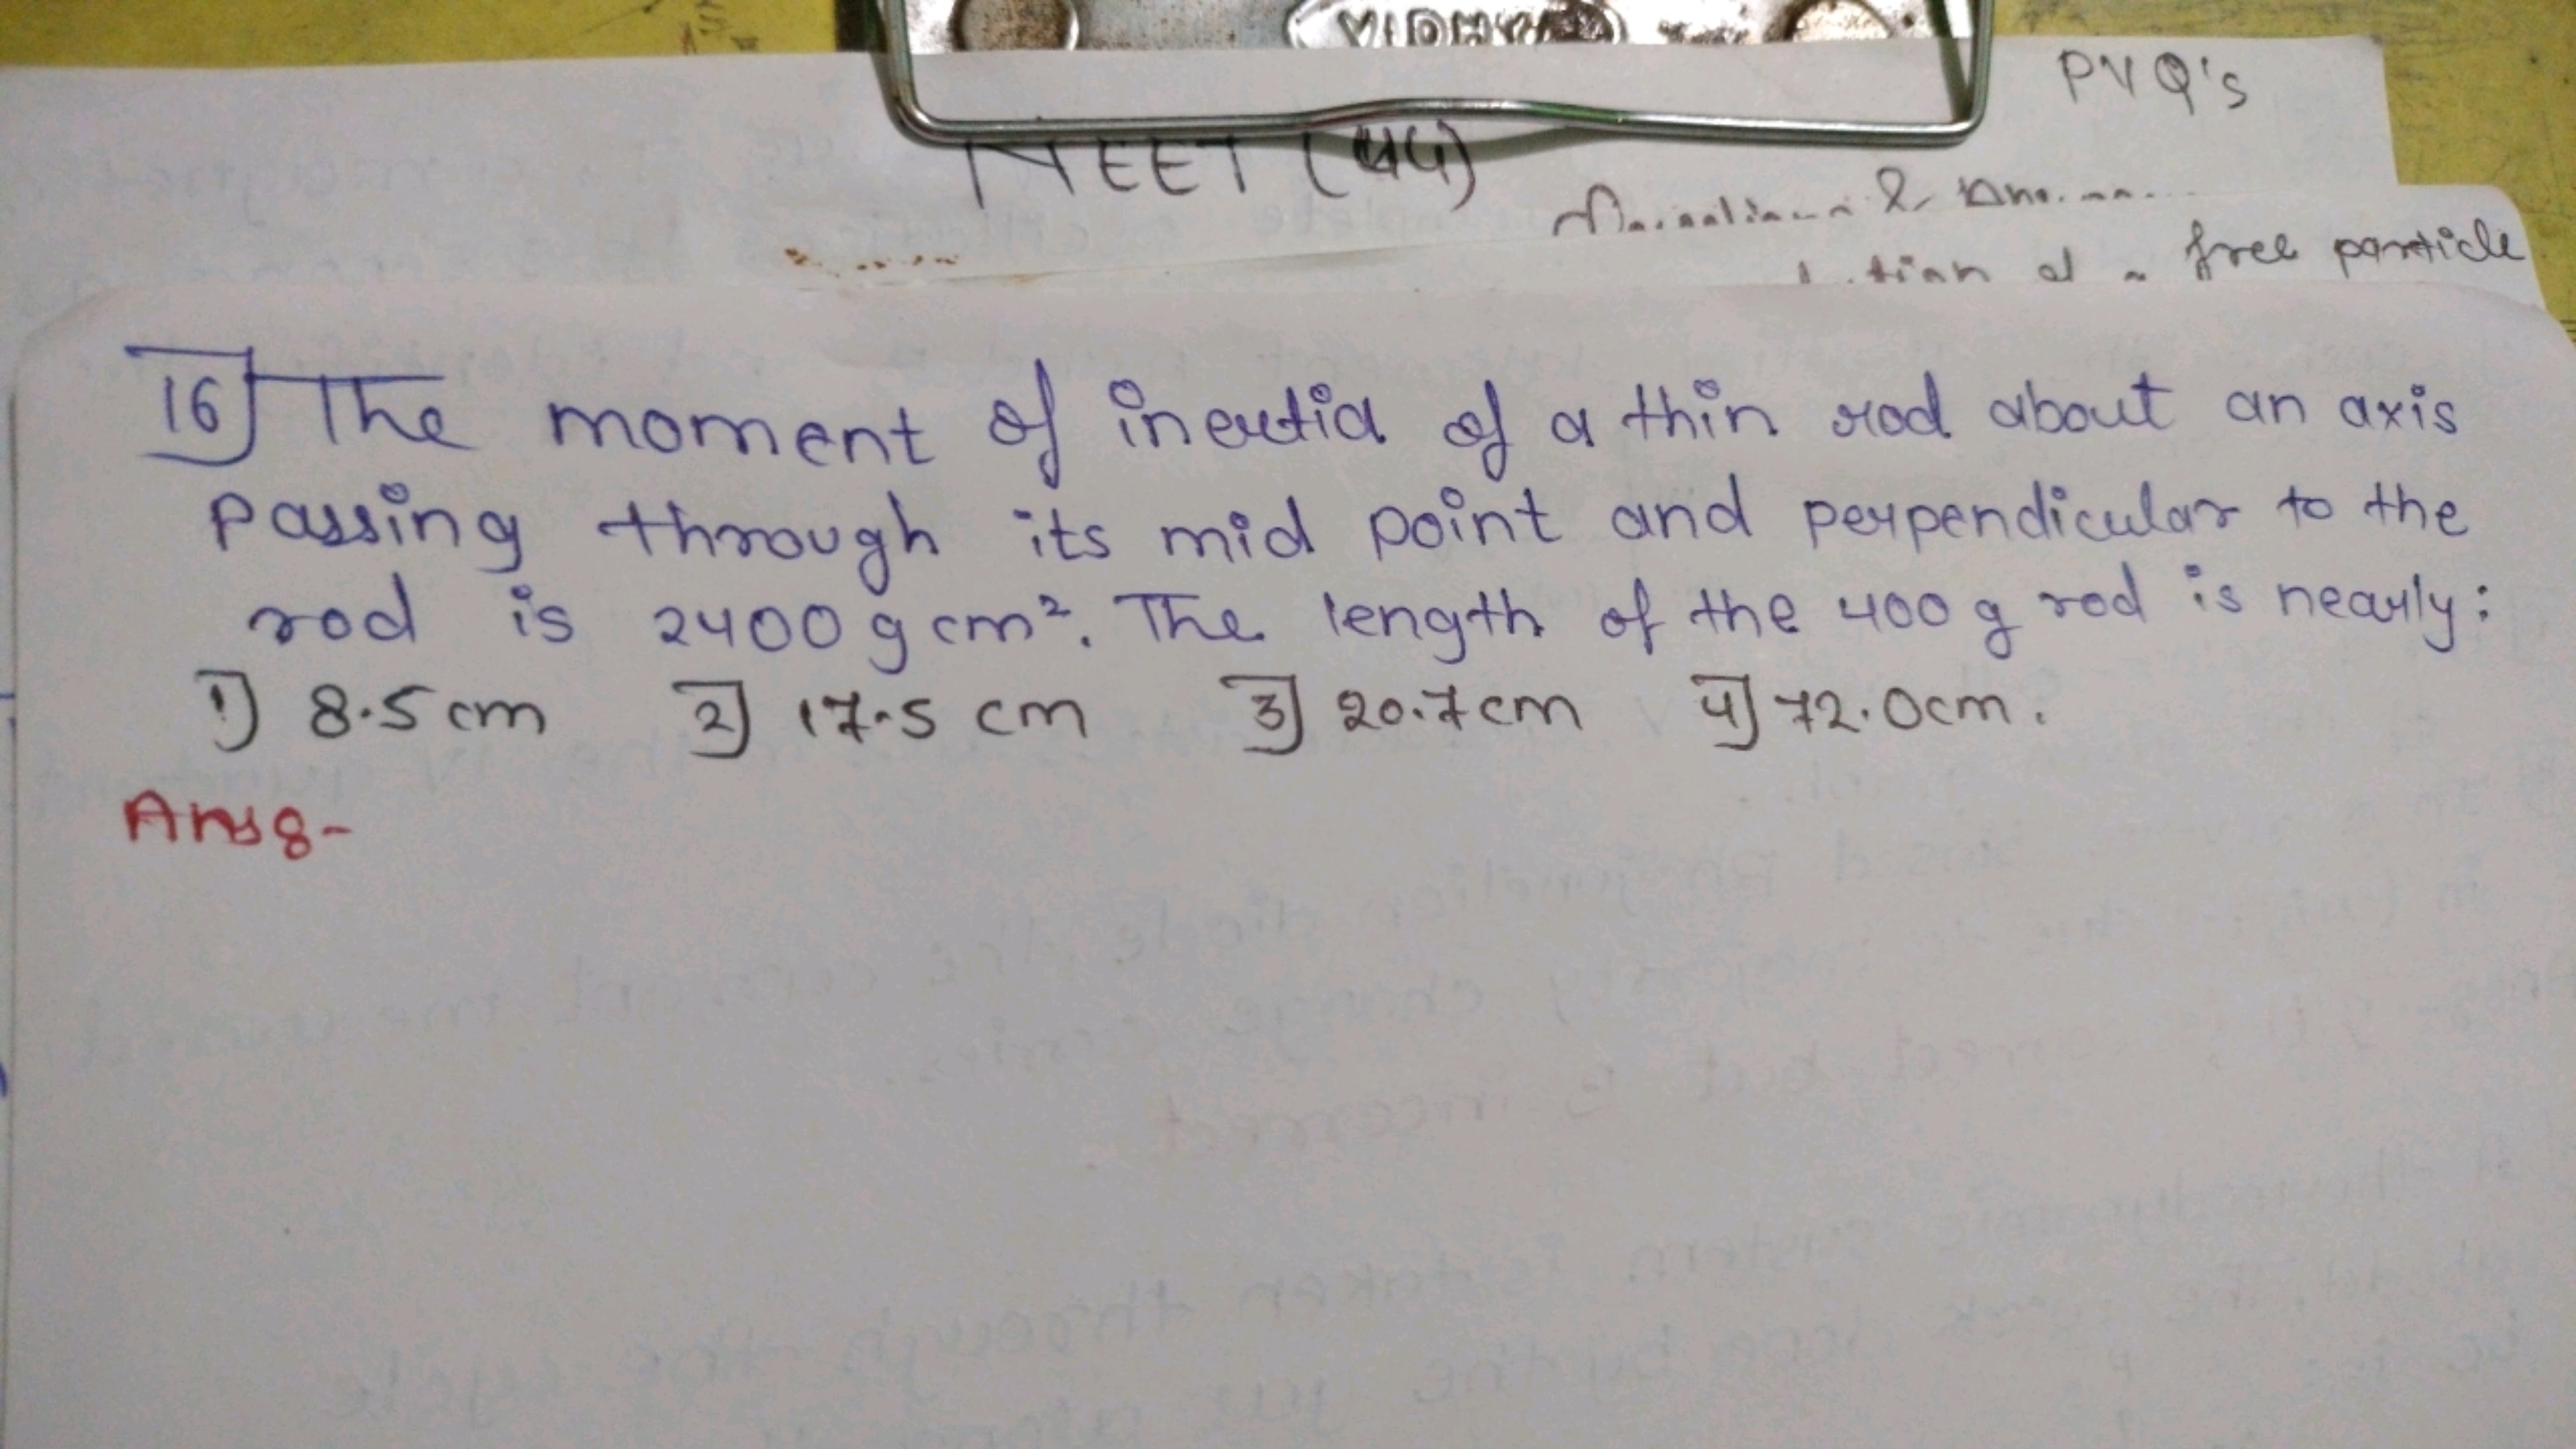 PYQ's
NEET (UG)
free particle
16] The moment of inertia of a thin rod about an axis
passing through its mid point and perpendicular to the
rod is 2400 g cm². The length of the 400 g rod is nearly:
1] 8.5 cm 2] 17.5 cm 3] 20.7 cm 4] 72.0 cm.
Ans:-